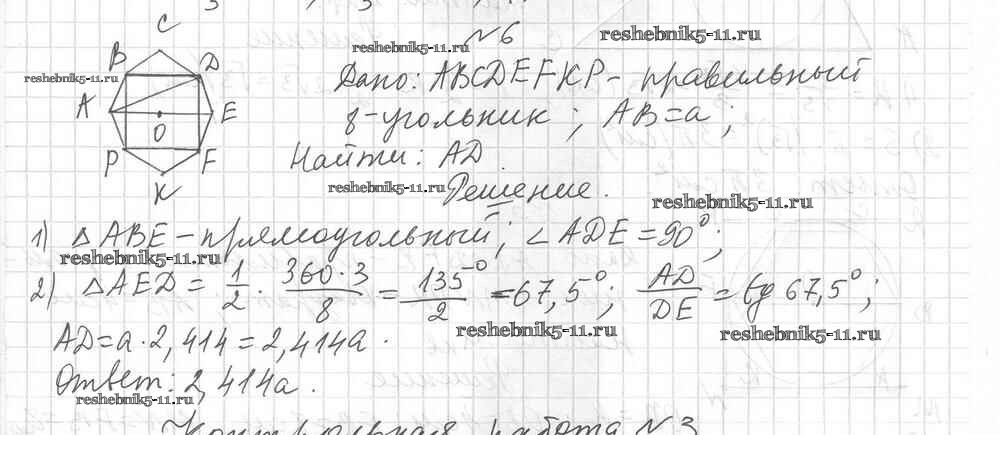 C
№6
reshebnik5-11.ru
reshebnik5-11.ru
B
D
reshebnik5-11.ru
Дано: ABCDEFKP - правильный
A
E
O
8-угольник; AB=a;
P
F
Найти: AD
K
reshebnik5-11.ru
Решение.
reshebnik5-11.ru
1) △ABE - прямоугольный; ∠ADE = 90°;
reshebnik5-11.ru
2) △AED = 1/2 · 360·3/8 = 135°/2 = 67,5°; AD/DE = tg 67,5°;
reshebnik5-11.ru
reshebnik5-11.ru
AD = a · 2,414 = 2,414a.
Ответ: 2,414a.
reshebnik5-11.ru
Контрольная работа №3